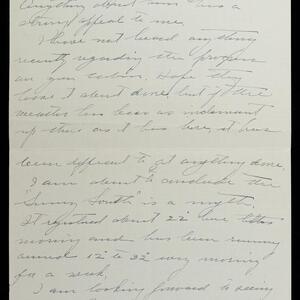 Anything about ... has a
strong appeal to me.
I have not heard anything
recently regarding the progress
on your cabin. Hope they
have it about done, but if the
weather has been as inclement
up there as it has here, it has
been difficult to get anything done.
I am about to conclude the
"Sunny South" is a myth.
It registered about 22° here
morning and has been running
around 12° to 22° every morning
for a week.
I am looking forward to seeing